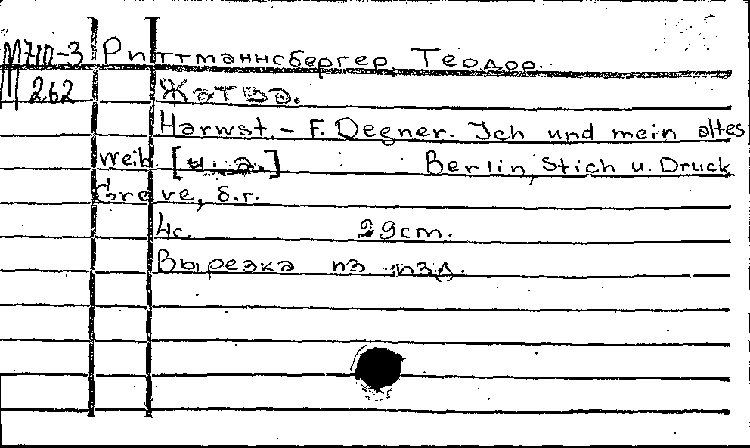 М710-3 Риттманнсбергер, Теодор.
262 Жатва.
Harwst. - F. Degner. Ich und mein altes
Weib. [и.а.] Berlin, Stich u. Druck
Greve, б.г.
4с. 29cm.
Вырезка из изд.